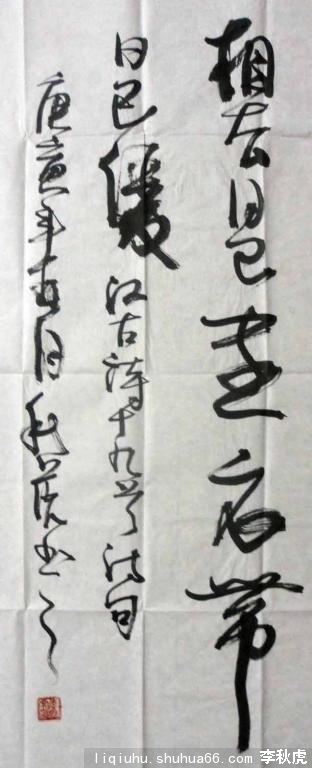 相去日已远衣带
日已缓 汉古诗十九首诗句
庚寅年月秋虎书之
liqiuhu.shuhua66.com 李秋虎